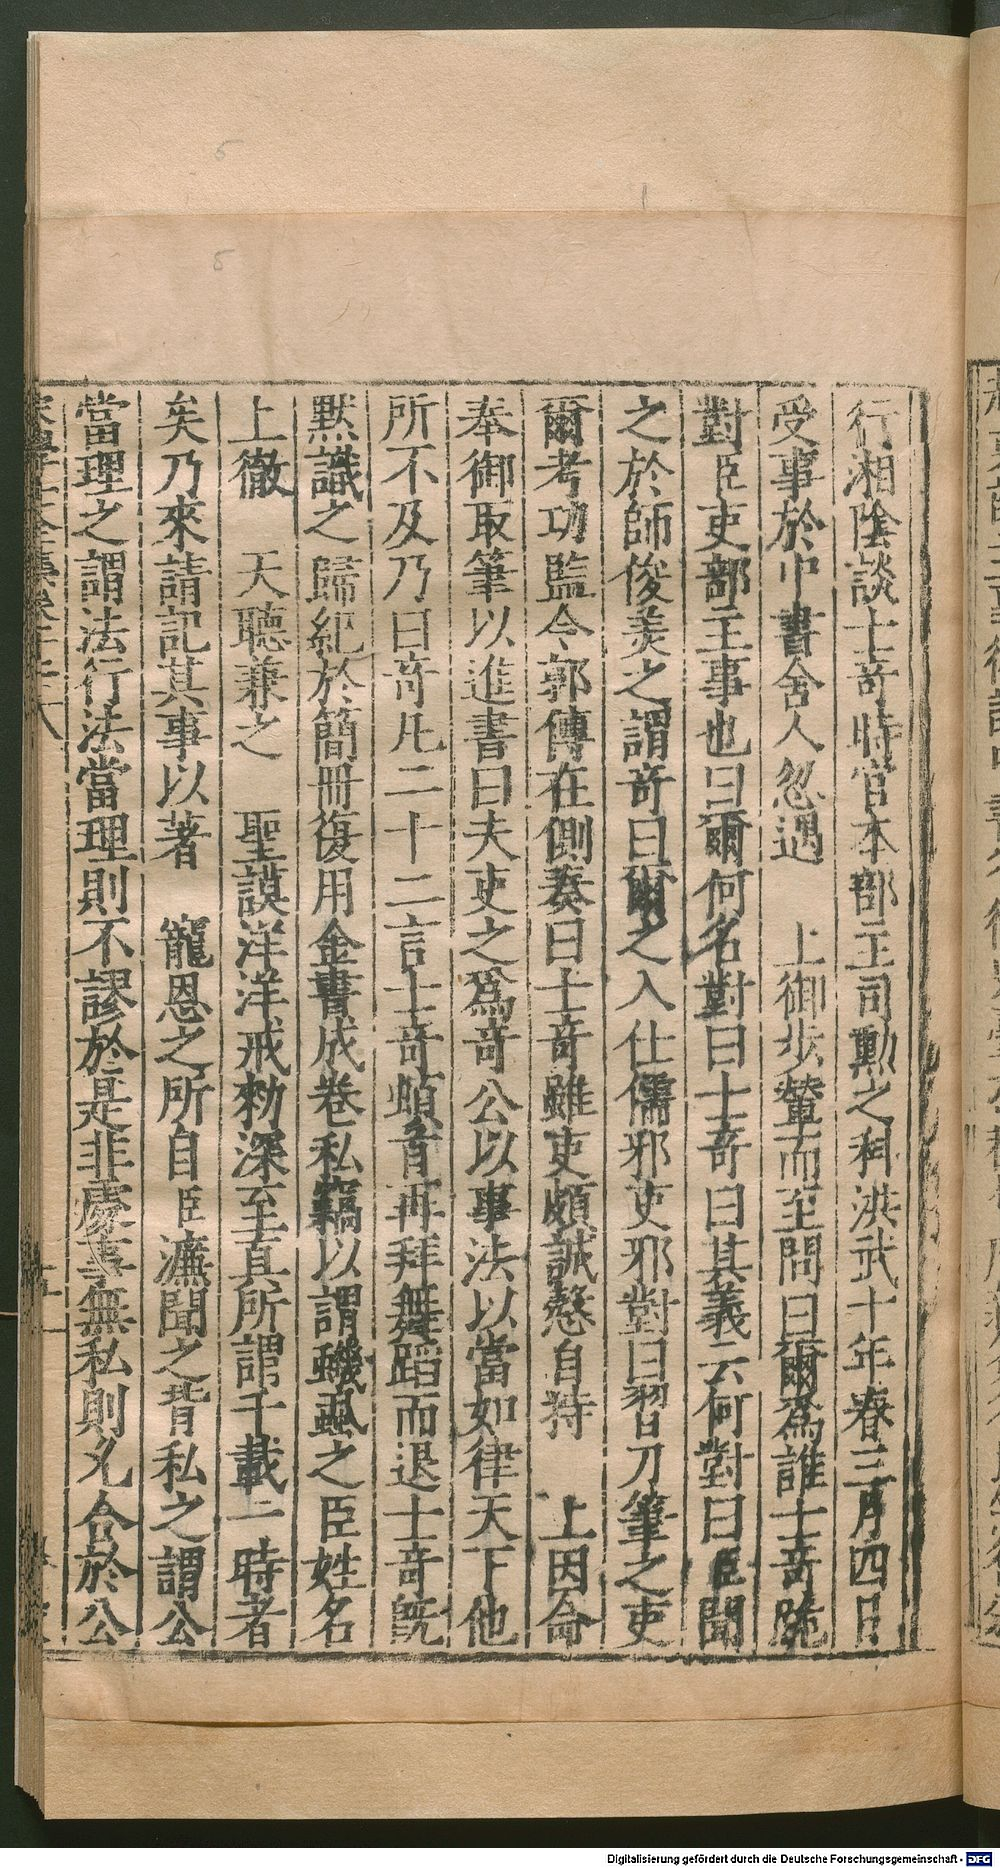 行湘陰談士奇時官本部主司勲之科洪武十年春三月四日
受事於中書舍人忽遇　上御步輦而至問曰爾為誰士奇跪
對臣吏部主事也曰爾何名對曰士奇曰其義云何對曰臣聞
之於師俊美之謂奇曰爾之入仕儒邪吏邪對曰習刀筆之吏
爾考功監令郭傳在側奏曰士奇雖吏頗誠愨自持　上因侖
奉御取筆以進書曰夫吏之爲奇公以事法以當如律天下他
所不及乃曰奇凡二十二言士奇頫首再拜舞蹈而退士奇旣
黙識之歸紀於簡冊復用金書成卷私竊以謂蟣虱之臣姓名
上徹　天聽兼之　聖謨洋洋戒勑深至真所謂千載一時者
矣乃來請記其事以著　寵恩之所自臣濂聞之背私之謂公
當理之謂法行法當理則不謬於是非處事無私則允合於公
5
5
Digitalisierung gefördert durch die Deutsche Forschungsgemeinschaft - DFG